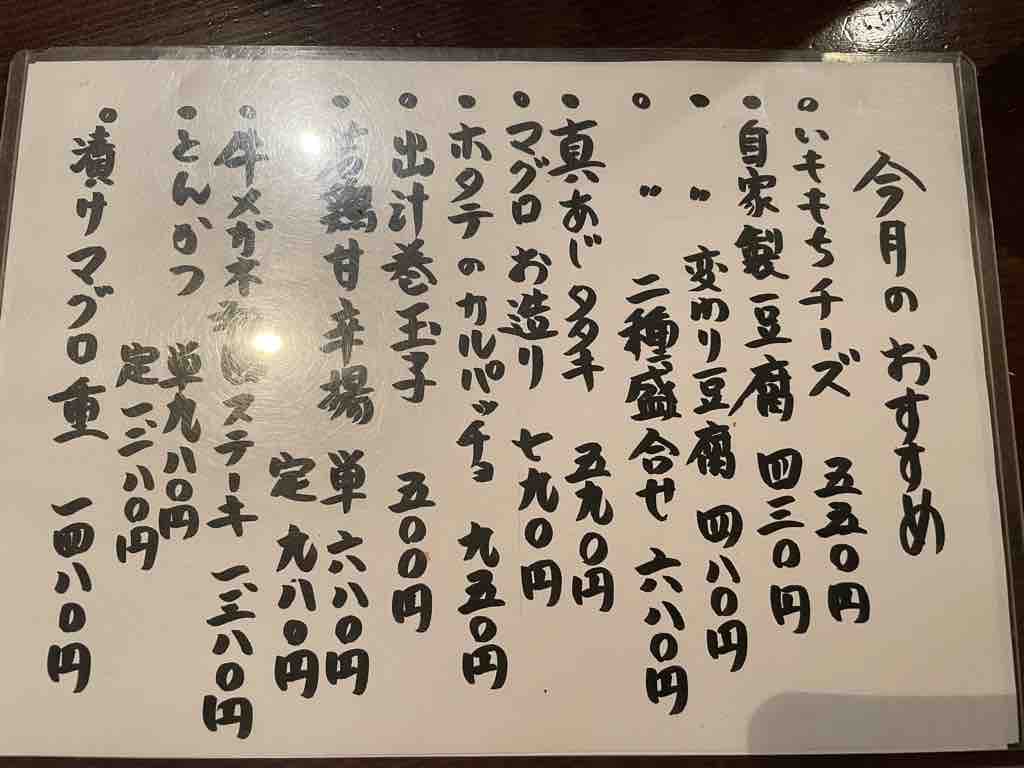 今月のおすすめ
・いももちチーズ 五五〇円
・自家製豆腐 四三〇円
・〃 変わり豆腐 四八〇円
・〃 二種盛合せ 六八〇円
・真あじタタキ 五九〇円
・マグロお造り 七九〇円
・ホタテのカルパッチョ 九五〇円
・出汁巻玉子 五〇〇円
・若鶏甘辛揚 単 六八〇円
定 九八〇円
・牛メガネ ステーキ 一、三八〇円
・とんかつ 単九八〇円
定一、二八〇円
・漬けマグロ重 一四八〇円